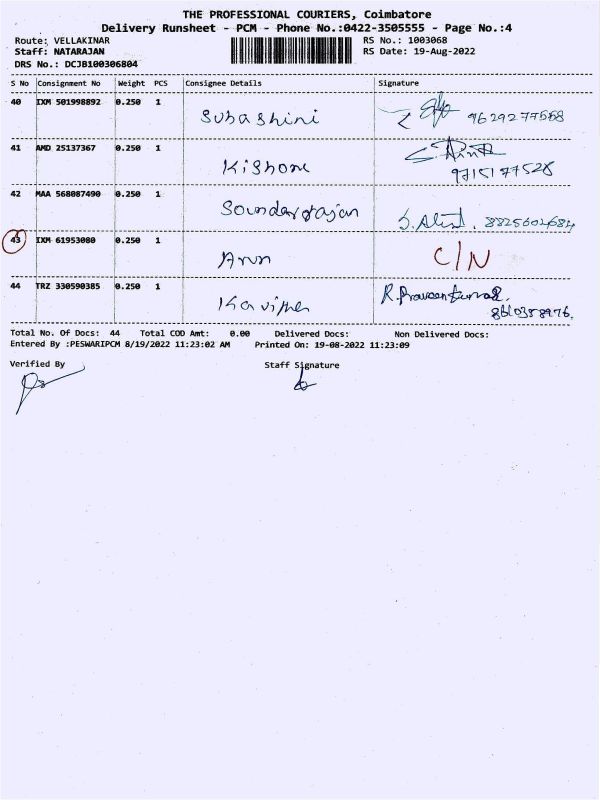 THE PROFESSIONAL COURIERS, Coimbatore
Delivery Runsheet - PCM - Phone No.:0422-3505555 - Page No.:4
Route: VELLAKINAR RS No.: 1003068
Staff: NATARAJAN RS Date: 19-Aug-2022
DRS No.: DCJB100306804
S No Consignment No Weight PCS Consignee Details Signature
40 IXM 501998892 0.250 1 Subashini 9629277668
41 AMD 25137367 0.250 1 Kishore 9715177528
42 MAA 568087490 0.250 1 Soundarrajan 8825602684
43 IXM 61953080 0.250 1 Arun C/N
44 TRZ 330590385 0.250 1 Kavitha R.Praveenkumar. 8610358976.
Total No. Of Docs: 44 Total COD Amt: 0.00 Delivered Docs: Non Delivered Docs:
Entered By :PESWARIPCM 8/19/2022 11:23:02 AM Printed On: 19-08-2022 11:23:09
Verified By Staff Signature